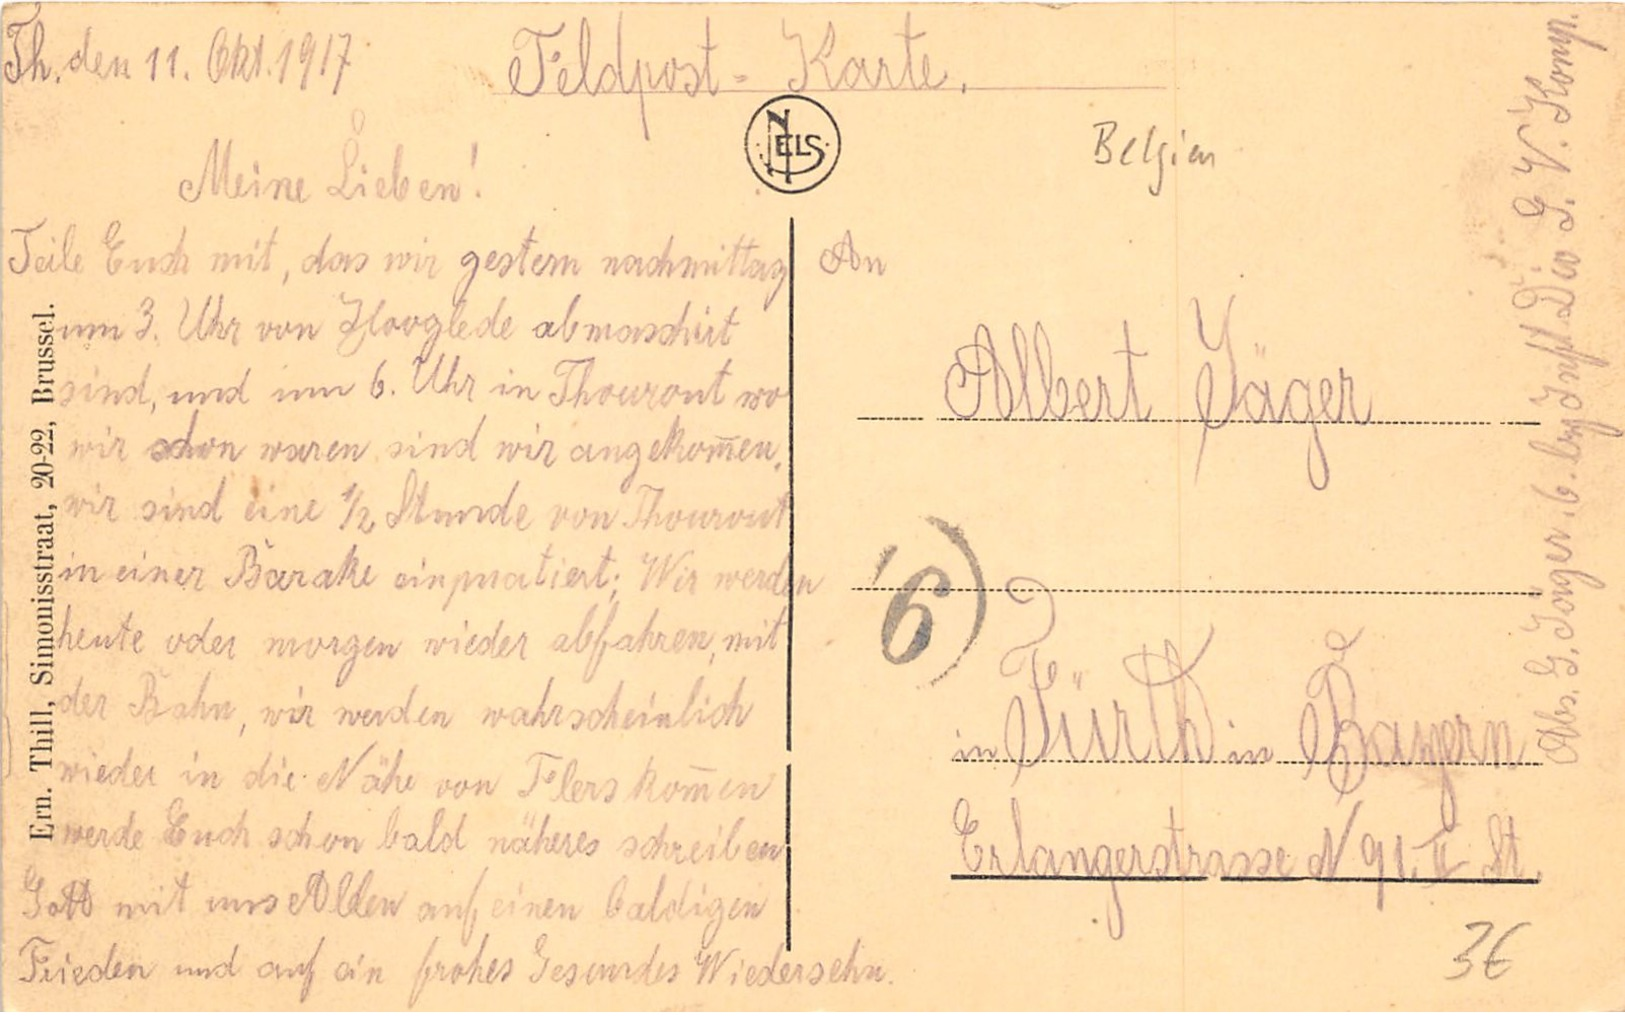 Th. den 11. Okt. 1917
Feldpost-Karte.
NELS
Belgien
Meine Lieben!
Teile Euch mit, das wir gestern nachmittag
um 3. Uhr von Hooglede abmaschirt
sind, und um 6. Uhr in Thourout wo
wir schon waren sind wir angekom̅en,
wir sind eine 1/2 Stunde von Thourout
in einer Barake einpuatiert; Wir werden
heute oder morgen wieder abfahren, mit
der Bahn, wir werden wahrscheinlich
wieder in die Nähe von Flers kom̅en
werde Euch schon bald näheres schreiben
Gott mit uns Allen auf einen baldigen
Frieden und auf ein frohes Gesundes Wiedersehn.
Ern. Thill, Simonisstraat, 20-22, Brussel.
An
Albert Jäger
6
in Fürth in Bayern
Erlangerstrasse N 91. II St.
3€
Abs. G. Jäger. 6. bay Inft Div G. V. Komp.